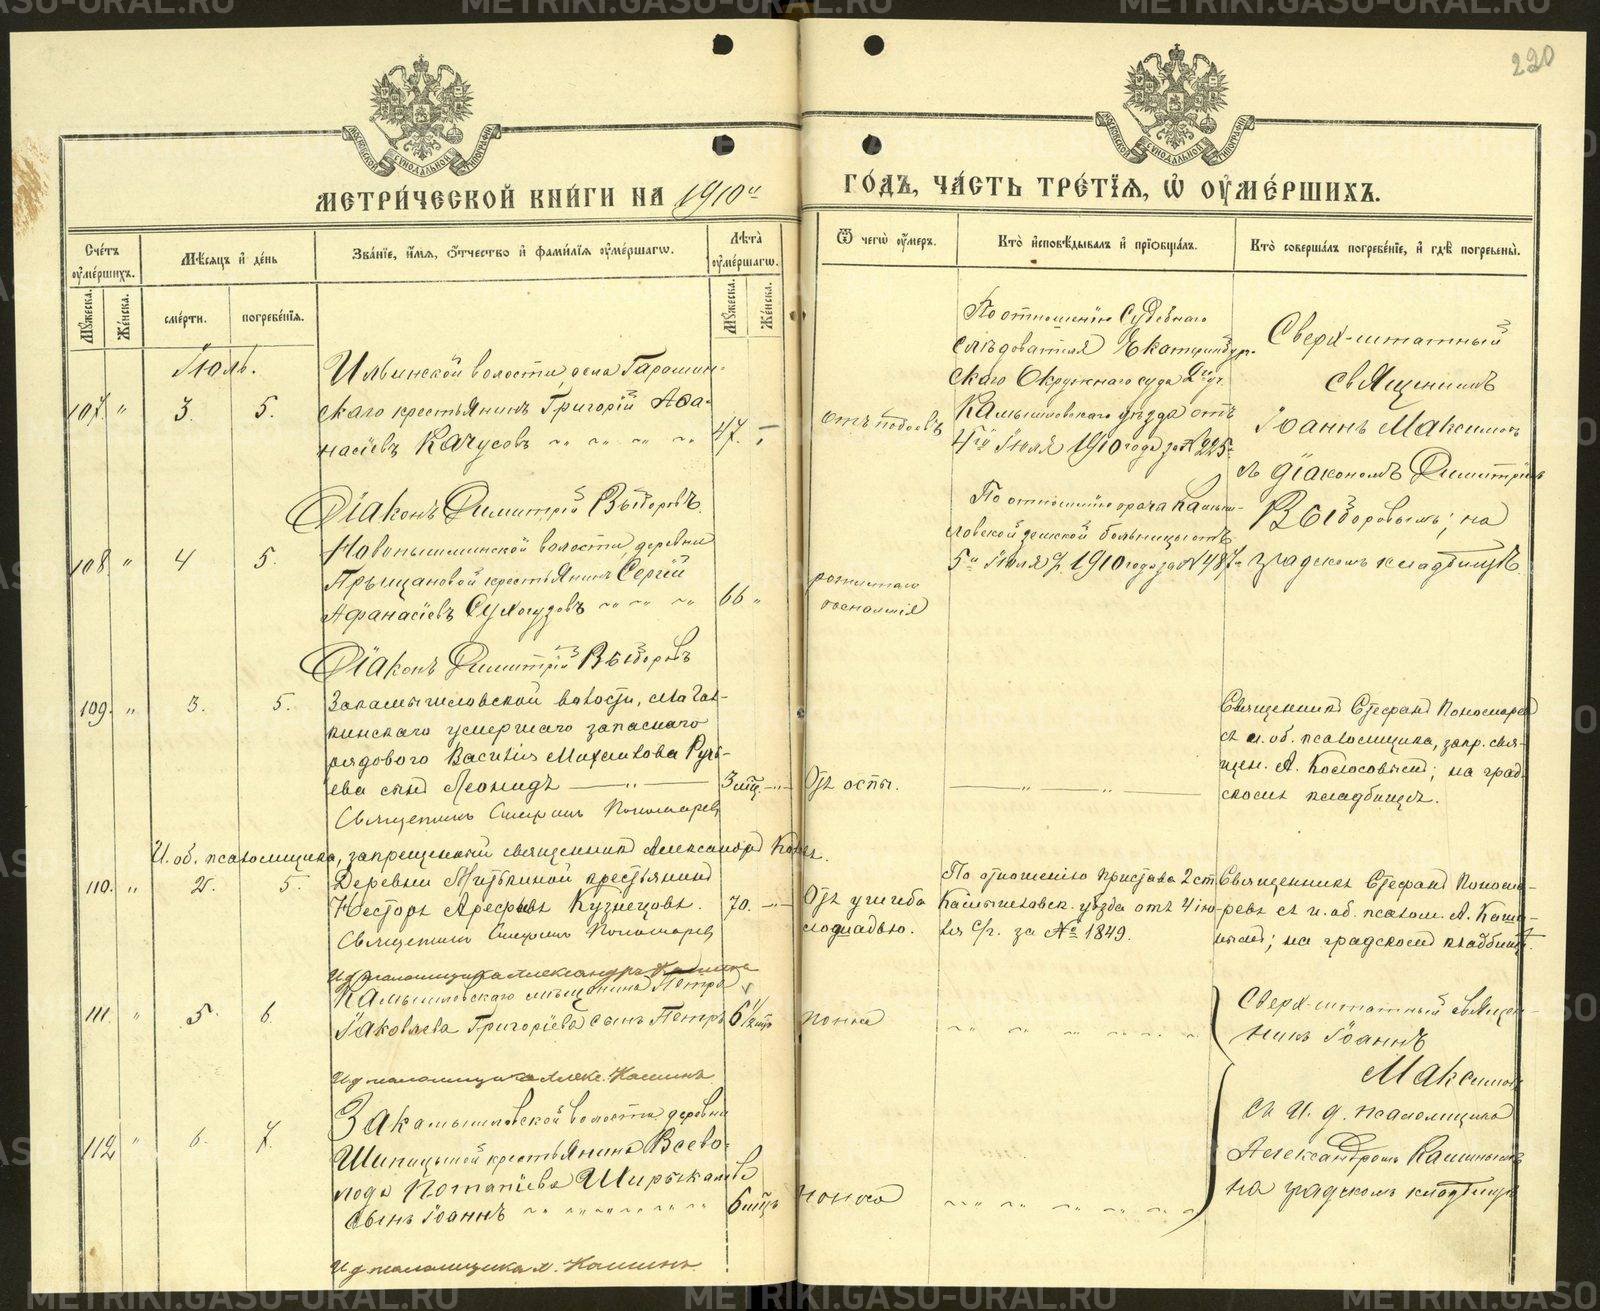 220
МОСКОВСКОЙ СѴНОДАЛЬНОЙ ТИПОГРАФІИ
МОСКОВСКОЙ СѴНОДАЛЬНОЙ ТИПОГРАФІИ
МЕТРИ́ЧЕСКОЙ КНИ́ГИ НА 1910й ГО́ДЪ, ЧА́СТЬ ТРЕ́ТІѦ, Ѡ҆ ОУ҆МЕ́РШИХЪ.
Сче́тъ оу҆ме́ршихъ.
Мꙋ́жеска.
Же́нска.
Мѣ́сѧцъ и҆ де́нь
сме́рти.
погребе́нїѧ.
Зва́нїе, и҆́мѧ, ѻ҆́тчество и҆ фами́лїѧ оу҆ме́ршагѡ.
Лѣ́та оу҆ме́ршагѡ.
Мꙋ́жеска.
Же́нска.
Ѿ чегѡ̀ оу҆́меръ.
Кто̀ и҆сповѣ́дывалъ и҆ прїѻбща́лъ.
Кто̀ соверша́лъ погребе́нїе, и҆ гдѣ̀ погребены̀.
Іюль.
107. " 3. 5.
Ильинской волости, села Гарашин-
скаго крестьянинъ Григорій Афа-
насіевъ Качусовъ
47. –
отъ побоевъ
По отношенію Судебнаго
слѣдователя Екатеринбург-
скаго Окружнаго суда 2го уч.
Камышловскаго уѣзда отъ
4го Іюля 1910 года за № 225.
Сверх-штатный
священникъ
Іоаннъ Максимовъ
съ діакономъ Димитріемъ
Выборовымъ; на
градскомъ кладбищѣ.
Діаконъ Димитрій Выборовъ.
108. " 4 5.
Новопышминской волости, деревни
крестьянинъ Сергій
Афанасіевъ
66 "
воспаленія
По отношенію врача Камыш-
ловской земской больницы отъ
5го Іюля 1910 года за № 487
Діаконъ Димитрій Выборовъ
109. " 3. 5.
Закамышловской волости, села Гал-
кинскаго умершаго запаснаго
рядового Василія Михаилова Ручь-
ева сынъ Леонидъ
3 мѣс.
Отъ оспы.
Священникъ Стефанъ Пономаревъ
съ и. об. псаломщика, запр. свя-
щен. А. Колосовымъ; на град-
скомъ кладбищѣ.
Священникъ Стефанъ Пономаревъ
И. об. псаломщика, запрещенный священникъ Александръ
110. " 2. 5.
Деревни Мыткиной крестьянинъ
Несторъ Арефьевъ Кузнецовъ.
70.
Отъ ушиба
лошадью.
По отношенію пристава 2 ст.
Камышловск. уѣзда отъ 4 ію-
ля с/г. за № 1849.
Священникъ Стефанъ Понома-
ревъ съ и. об. псалом. А. Каши-
нымъ; на градскомъ кладбищѣ.
Священникъ Стефанъ Пономаревъ
И д псаломщика Александръ Кашинъ
111. " 5. 6.
Камышловскаго мѣщанина Петра
Іаковлева Григоріева сынъ Петръ
6 1/2 мѣс
поноса
Сверх-штатный священ-
никъ Іоаннъ
Максимовъ
съ И. д. псаломщика
Александромъ Кашинымъ
на градскомъ кладбищѣ
И д псаломщика Алекс. Кашинъ
112 " 6. 7.
Закамышловской волости деревни
Шипицыной крестьянина Всево-
лода Потапіева Ширыкалова
сынъ Іоаннъ
6 мѣс.
поноса
И д псаломщика А. Кашинъ.
METRIKI.GASO-URAL.RU